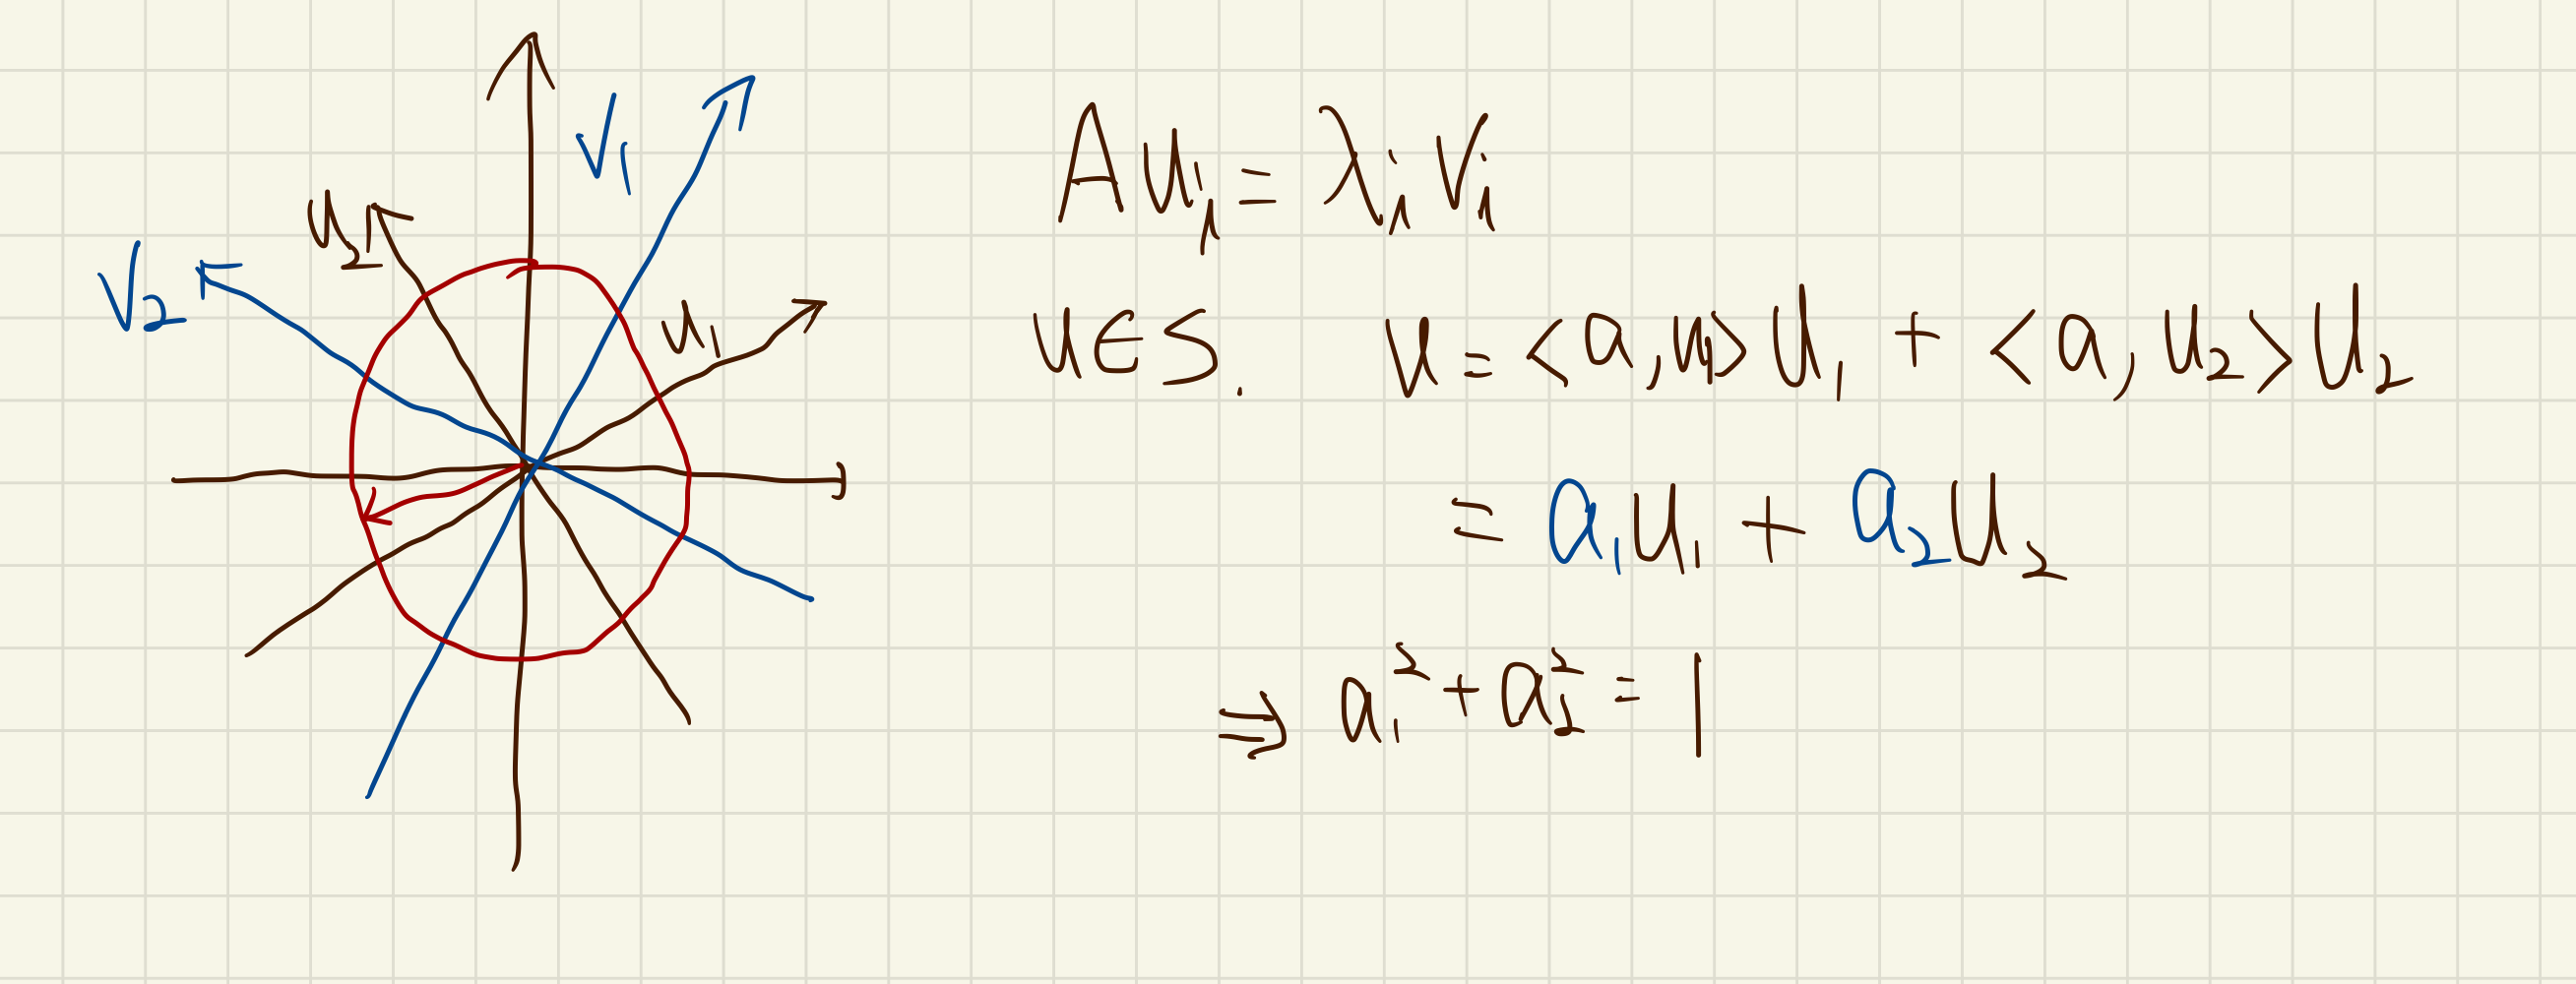 V₁
u₂
V₂
u₁
Auᵢ = λᵢVᵢ
u∈S. u = <a,u₁>u₁ + <a,u₂>u₂
= a₁u₁ + a₂u₂
⇒ a₁² + a₂² = 1